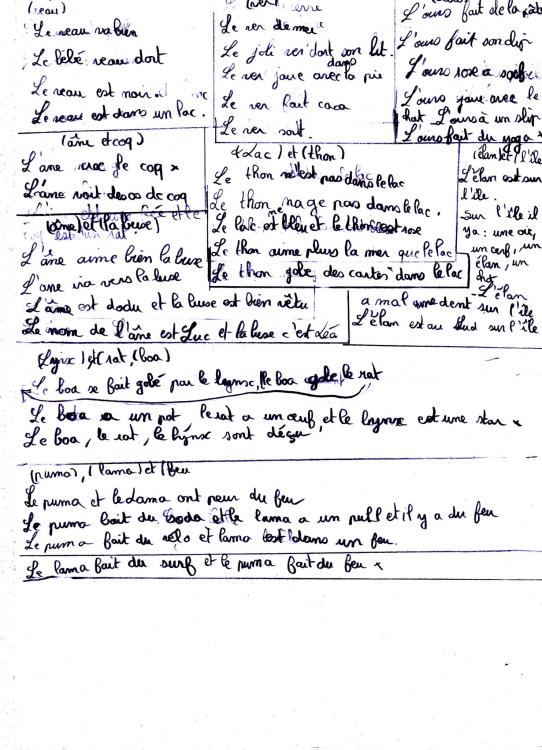 (veau)
Le veau va bien
Le bébé veau dort
Le veau est noir
Le veau est dans un lac.
Le ver de
Le joli ver dort son lit.
dans
Le ver joue avec la pie
Le ver fait caca
Le ver sort.
L'ours fait de la
L'ours fait son
L'ours rose a
L'ours joue avec le
hat L'ours à un slip
L'ours fait du yoga
(âne et coq)
L'âne le coq
L'âne voit des os de coq
(âne) et (la buse)
L'âne aime bien la buse
L'âne va vers la buse
L'âne est dodu et la buse est bien vêtu
Le nom de l'âne est Luc et la buse c'est Léa
(Lac) et (thon)
Le thon n'est pas dans le lac
Le thon nage pas dans le lac.
Le lac est bleu et le thon est rose
Le thon aime plus la mer que le lac
Le thon gobe des cartes dans le lac
(élan) et (l'île
L'élan est sur
l'île.
Sur l'île il
ya : une oie,
un cerf, un
élan, un
L'élan
a mal une dent sur l'île
L'élan est au Sud sur l'île
(Lynx) et (rat, (boa)
Le boa se fait gobé par le lynx, le boa gobe le rat
Le boa a un pot le rat a un œuf, et le lynx est une star
Le boa, le rat, le lynx sont déçu
(puma), (lama) et (feu
Le puma et le lama ont peur du feu
Le puma boit du soda et le lama a un pull et il y a du feu
Le puma fait du vélo et lama est dans un feu.
Le lama fait du surf et le puma fait du feu